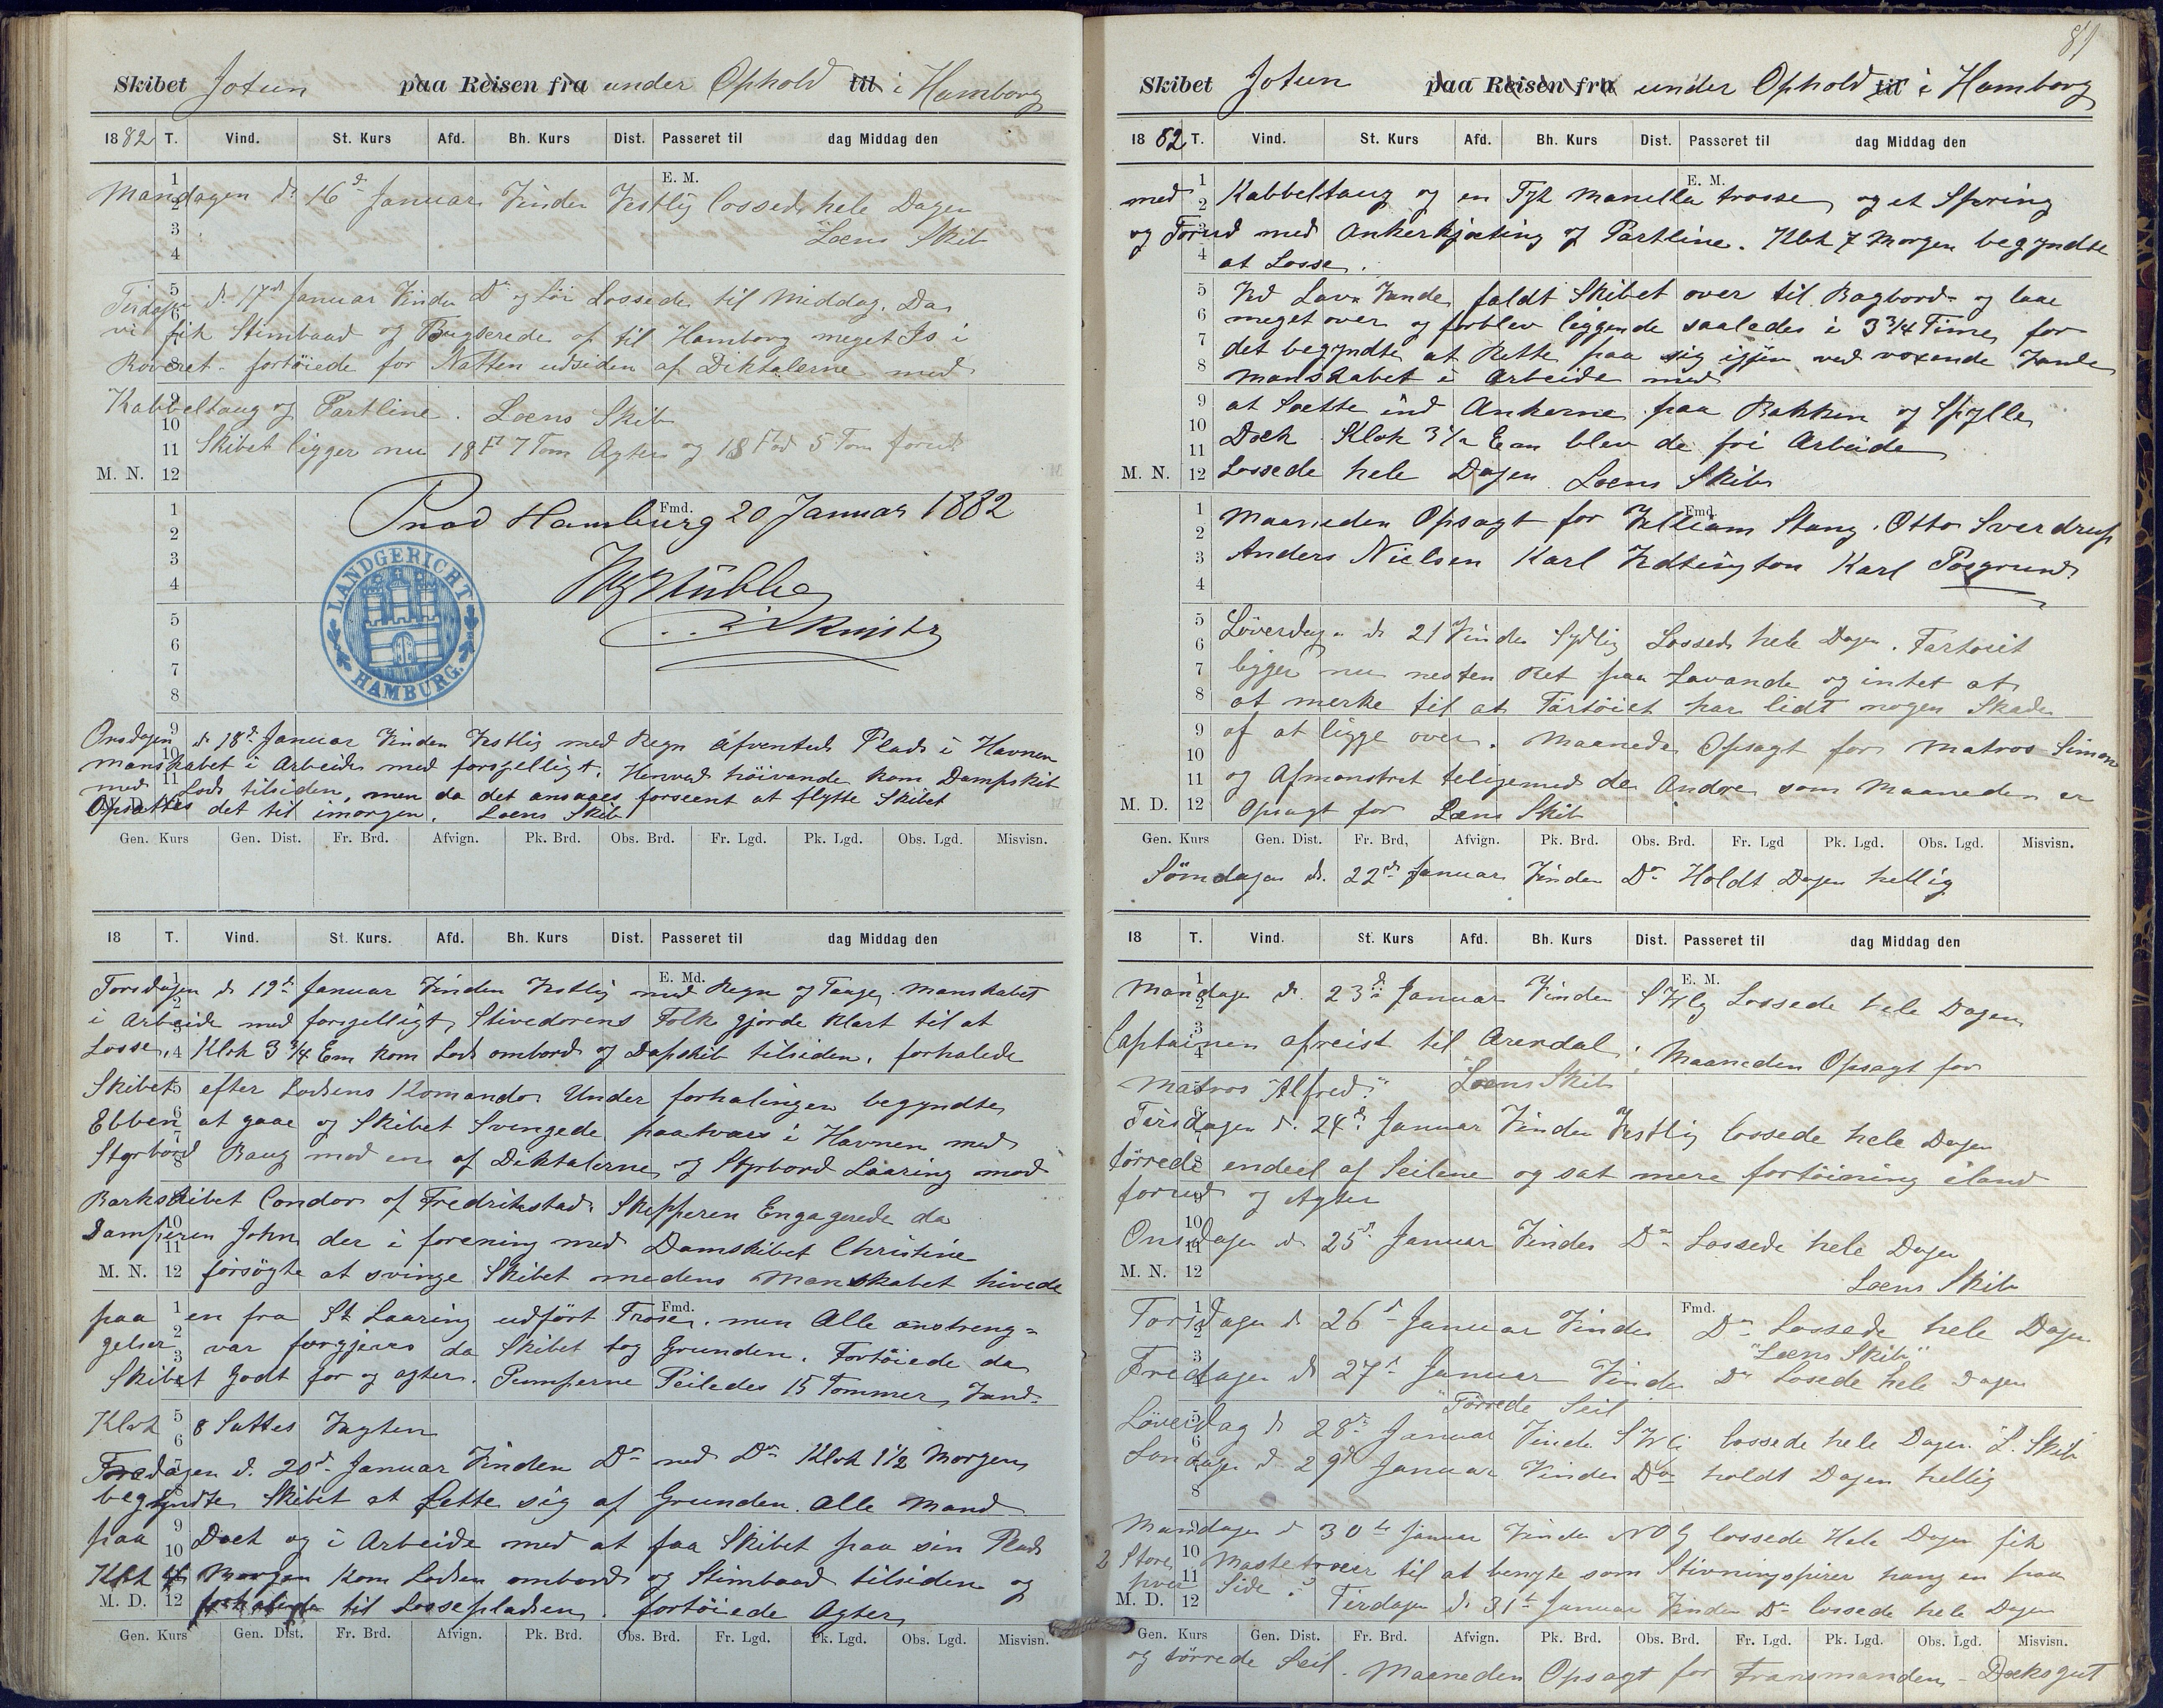 Skibet Jotun paa Reisen fra under Ophold til i Hamborg
1882 T. Vind. St. Kurs Afd. Bh. Kurs Dist. Passeret til dag Middag den
E. M.
Mandagen d. 16d Januar Vinden Vestlig lossede hele Dagen
Læns Skib
Tirdagen d. 17d Januar Vinden Do og Lör Lossede til Middag. Da
vi fik Stimbaad og Bugserede op til Hamborg meget Is i
Reveret fortöiede for Natten udsiden af Diktalerne med
Kabbeltaug og Partline. Læns Skib
Skibet ligger nu 18 Ft 7 Tom Agter og 18 Fod 5 Tom forud
M. N.
Fmd.
Prod Hamburg 20 Januar 1882
LANDGERICHT HAMBURG.
Onsdagen d. 18d Januar Vinden Vestlig med Regn afventede Plads i Havnen
Manskabet i Arbeide med forsgelligt. Henved höivande kom Dampskib
med Lods tilsiden, men da det ansaaes forseent at flytte Skibet
Opsattes det til imorgen. Læns Skib
Gen. Kurs Gen. Dist. Fr. Brd. Afvign. Pk. Brd. Obs. Brd. Fr. Lgd. Pk. Lgd. Obs. Lgd. Misvisn.
18 T. Vind. St. Kurs. Afd. Bh. Kurs Dist. Passeret til dag Middag den
E. Md.
Torsdagen d. 19d Januar Vinden Vestlig med Regn og Taage. Manskabet
i Arbeide med forsgelligt, Stivedorens Folk gjorde klart til at
Losse, Klok 3 3/4 Em kom Lods ombord og Dapskib tilsiden. forhalede
Skibet efter Lodsens Komando Under forhalingen begyndte
Ebben at gaae og Skibet Svingede paatvars i Havnen med
Styrbord Baug mod en af Diktalerne og Styrbord Laaring mod
Barkskibet Condor af Fredrikstad. Skipperen Engagerede da
Damperen John der i forening med Damskibet Christine
M. N. 12 forsögte at svinge Skibet medens Manskabet hivede
Fmd.
paa en fra St Laaring udfört Trose. men Alle anstreng=
gelser var forgjeves da Skibet tog Grunden. Fortöiede da
Skibet Godt for og agter. Pumperne Peiledes 15 Tommer Vand.
Klok 8 Sattes Vagten
Fredagen d. 20d Januar Vinden Do med Do Klok 1 1/2 Morgen
begyndte Skibet at Lette sig af Grunden. Alle Mand
paa Dæk og i Arbeide med at faa Skibet paa sin Plads
Klok 4 Morgen kom Lodsen ombord og Stimbaad tilsiden og
M. D. 12 forhalede til Lossepladsen. fortöiede Agter
Gen. Kurs Gen. Dist. Fr. Brd. Afvign. Pk. Brd. Obs. Brd. Fr. Lgd. Pk. Lgd. Obs. Lgd. Misvisn.
81
Skibet Jotun paa Reisen fra under Ophold til i Hamborg
1882 T. Vind. St. Kurs Afd. Bh. Kurs Dist. Passeret til dag Middag den
E. M.
med Kabbeltaug og en Tyk Manella trosse, og et Spring
og Forud med Ankerkjæting og Partline. Klok 7 Morgen begyndte
at Losse.
Ved Lav Vande faldt Skibet over til Bagbord og laae
meget over og forblev liggende saaledes i 3 3/4 Time, for
det begyndte at Rette paa sig igjen ved voxende Vande
Manskabet i Arbeide med
at Sætte ind Ankerne paa Bakken og Spylle
Dæk Klok 3 1/2 Em blev de fri Arbeide
M. N. 12 Lossede hele Dagen Læns Skib
Fmd.
Maaneden Opsagt for William Stang. Otto Sverdrup
Anders Nielsen Karl Vedtington Karl Posgrund.
Löverdagen d. 21 Vinden Sydlig Lossede hele Dagen. Fartoiet
ligger nu nesten Ret paa Lavande og intet at
at merke til at Fartöiet har lidt nogen Skade
af at ligge over. Maanede Opsagt for Matros Simon
og Afmonstret teligemed de Andre som Maaneden er
M. D. 12 Opsagt for Læns Skib
Gen. Kurs Gen. Dist. Fr. Brd, Afvign. Pk. Brd. Obs. Brd. Fr. Lgd Pk. Lgd. Obs. Lgd. Misvisn.
Sömdagen d. 22d Januar Vinden Do Holdt Dagen hellig
18 T. Vind. St. Kurs Afd. Bh. Kurs Dist. Passeret til dag Middag den
E. M.
Mandagen d. 23d Januar Vinden SVlg Lossede hele Dagen
Captainen afreist til Arendal; Maaneden Opsagt for
Matros "Alfred" Læns Skib
Tirsdagen d. 24d Januar Vinden Vestlig lossede hele Dagen
törrede endeel af Seilene og sat mere fortöining iland
forud og Agter
Onsdagen d 25d Januar Vinden Do Lossede hele Dagen
M. N. 12
Læns Skib
Fmd.
Torsdagen d 26d Januar Vinden Do Lossede hele Dagen
"Læns Skib"
Fredagen d 27d Januar Vinden Do Losede hele Dagen
"Törrede Seil
Löverdag d 28d Januar Vinde SVli lossede hele Dagen L. Skib
Sondagen d 29d Januar Vinden Do holdt Dagen hellig
Mandagen d 30te Januar Vinden NOlg lossede Hele Dagen fik
2 Store Mastetræer til at benyte som Stivningspirer hang en paa
hver Side.
M. D. 12 Tirdagen d. 31te Januar Vinden Do lossede hele Dagen
Gen. Kurs Gen. Dist. Fr. Brd. Afvign. Pk. Brd. Obs. Brd. Fr. Lgd. Pk. Lgd. Obs. Lgd. Misvisn.
og törrede Seil. Maaneden Opsagt for Fransmanden - Dæksgut